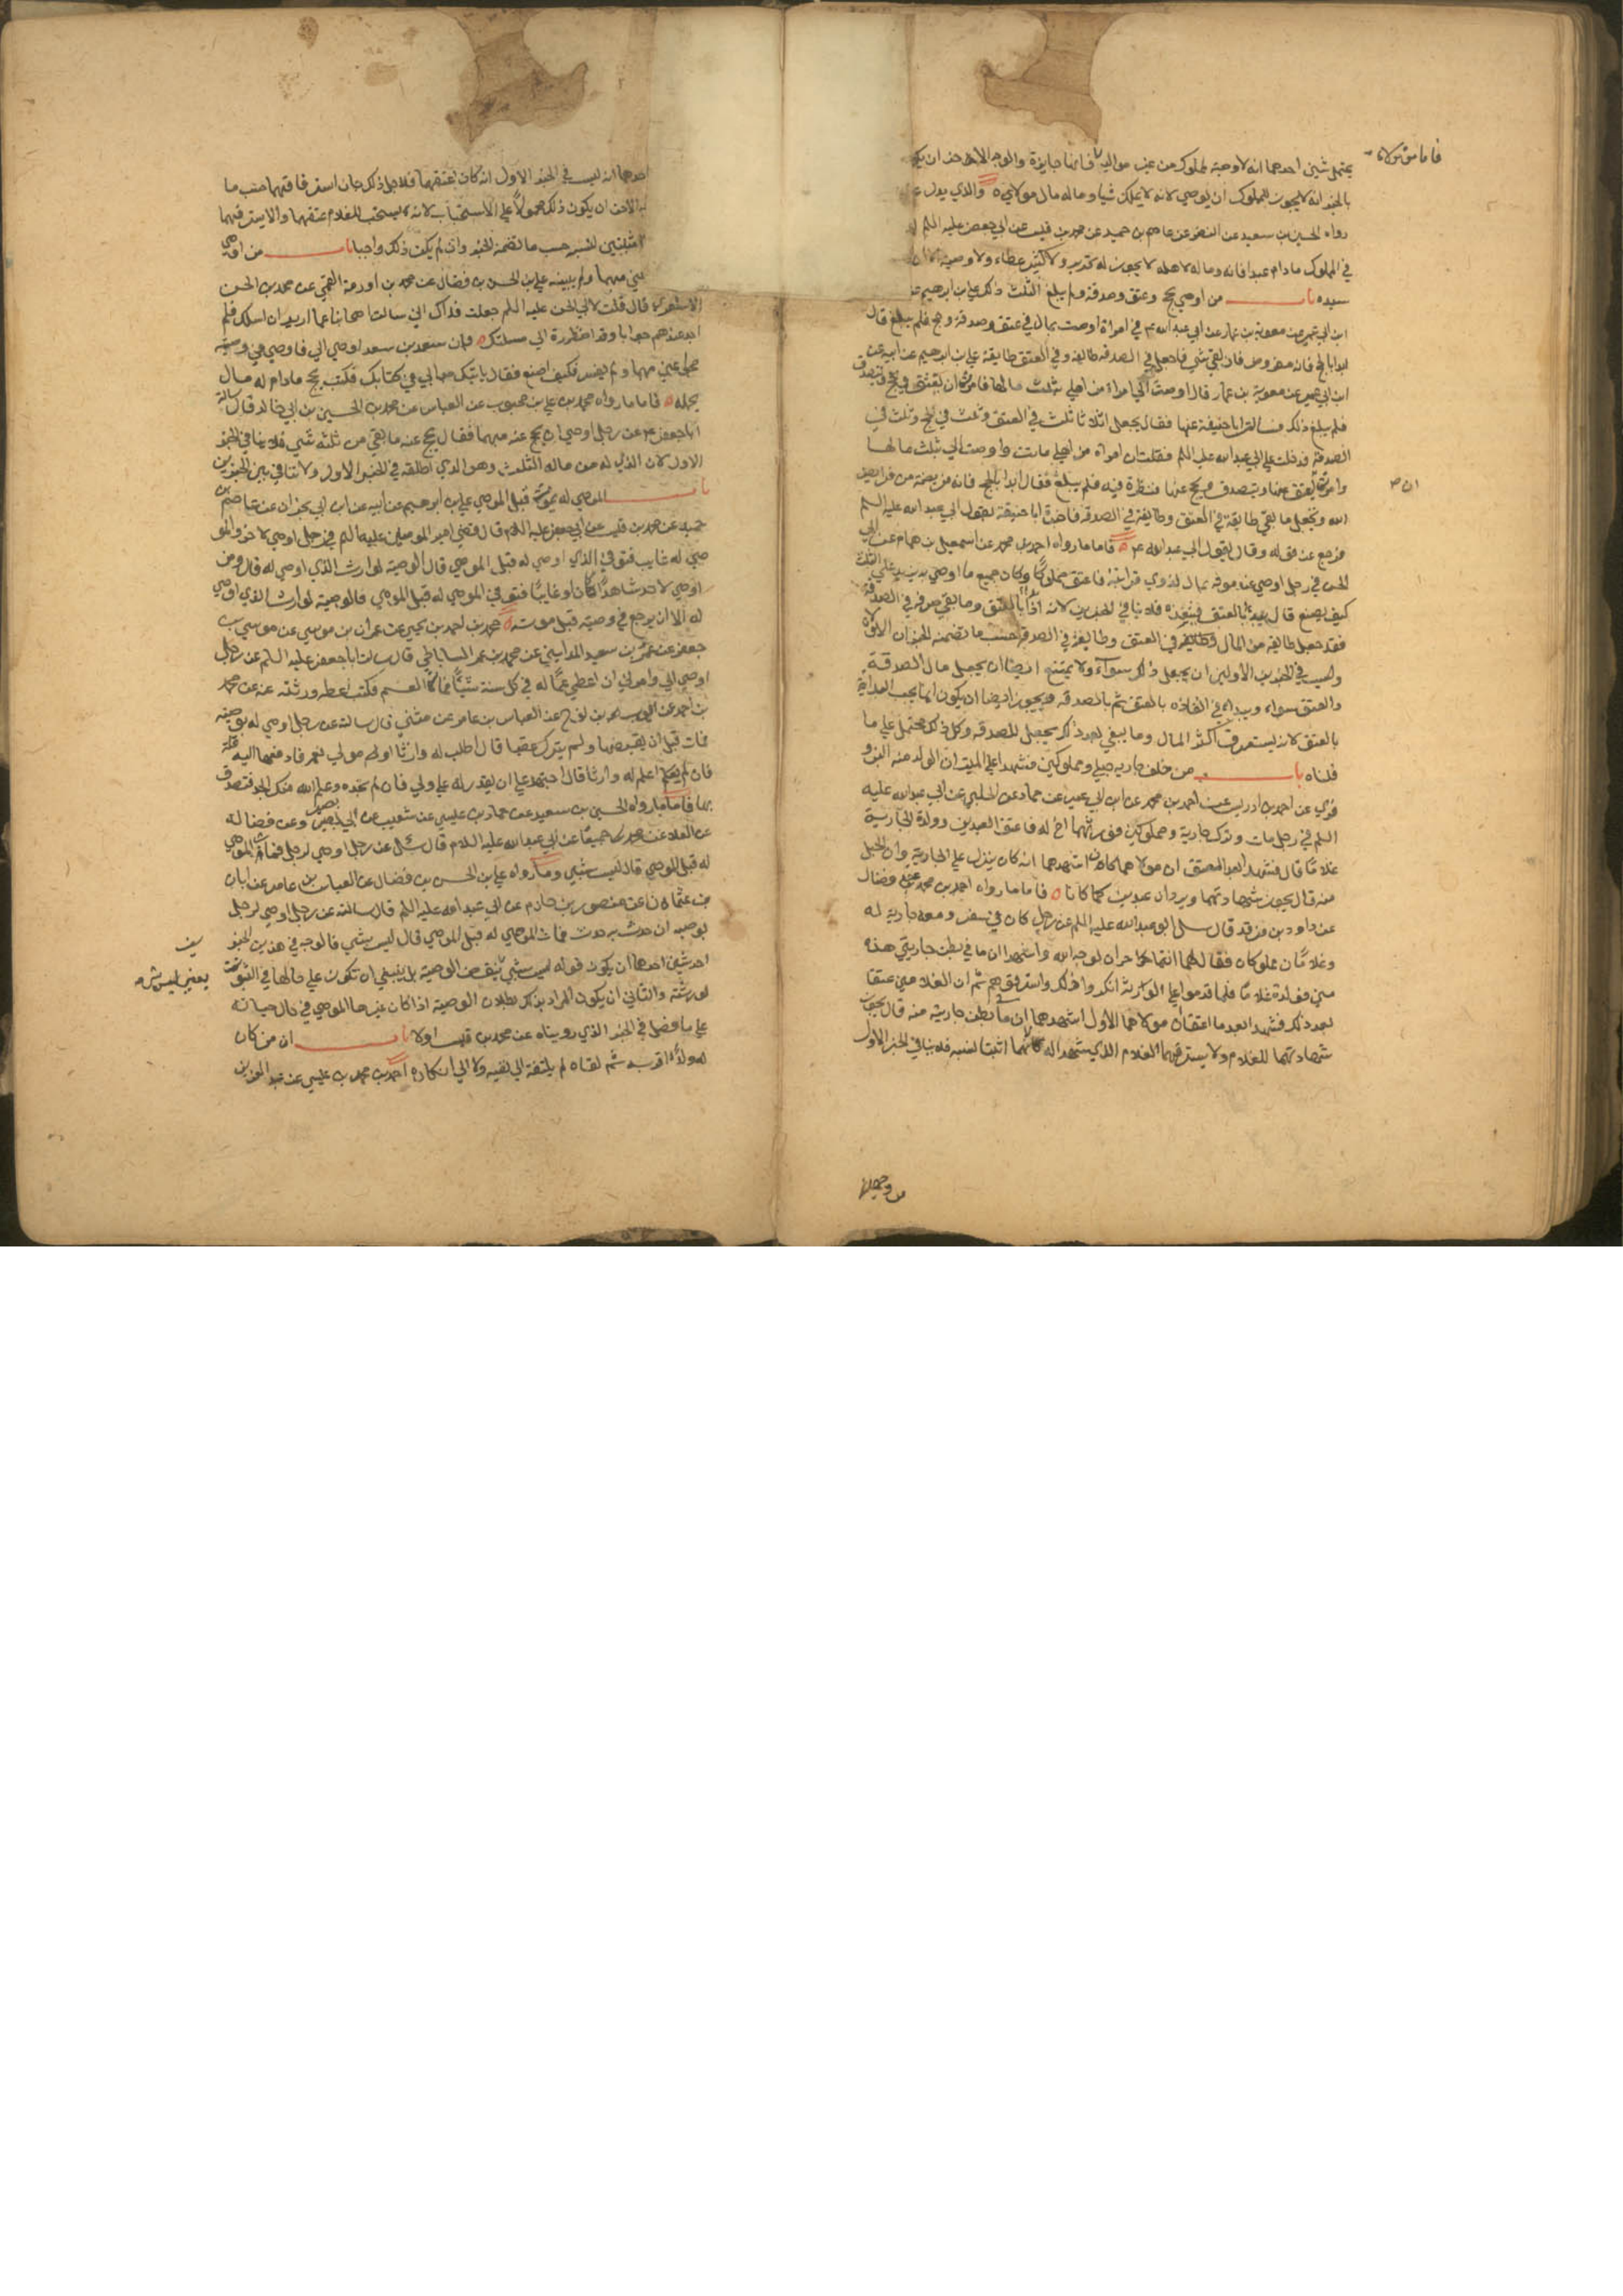 يحتمل شيئين احدهما انه لا وصية لمملوك من غير مواليه فانها جايزة والوجه الاخر
بالخبر انه لا يجوز للمملوك ان يوصي لانه لا يملك شيا وماله مال مولاه والذي يدل
رواه الحسين بن سعيد عن النضر عن عاصم بن حميد عن محمد بن قيس عن ابي جعفر عليه السلم
في المملوك ما دام عبدا فانه وماله لاهله لا يجوز له تحرير ولا كثير عطاء ولا وصية
سيده باب من اوصي بحج وعتق وصدقة ولم يبلغ الثلث ذلك علي بن ابرهيم
ابن ابي عمير عن معوية بن عمار عن ابي عبد الله ع في امراة اوصت بمال في عتق وصدقة وحج فلم يبلغ قال
ابدا بالحج فانه مفروض فان بقي شي فاجعل في الصدقة طايفة وفي العتق طايفة علي بن ابرهيم عن ابيه عن
ابن ابي عمير عن معوية بن عمار قال اوصت الي امراة من اهلي بثلث مالها فامرت ان يعتق ويحج ويتصدق
فلم يبلغ ذلك فسالت ابا حنيفة عنها فقال يجعل اثلاثا ثلث في العتق وثلث في الحج وثلث في
الصدقة فدخلت علي ابي عبد الله عليه السلم فقلت ان امراة من اهلي ماتت واوصت الي بثلث مالها
وامرت ان يعتق عنها ويتصدق ويحج عنها فنظرت فيه فلم يبلغ فقال ابدا بالحج فانه فريضة من فرايض
الله ويجعل ما بقي طايفة في العتق وطايفة في الصدقة فاخبرت ابا حنيفة بقول ابي عبد الله عليه السلم
فرجع عن قوله وقال بقول ابي عبد الله ع فاما ما رواه احمد بن محمد عن اسمعيل بن همام عن ابي
الحسن في رجل اوصي عند موته بمال لذوي قرابته فاعتق مملوكا وكان جميع ما اوصي به يزيد علي الثلث
كيف يصنع قال يبدا بالعتق فينفذه فلا ينافي الخبرين لانه اذا بالعتق وما بقي صرفه في الصدقة
فقد جعل طايفة من المال في العتق وطايفة في الصدقة حسب ما تضمنه الخبران الاولان
وليس في الخبرين الاولين ان يجعل ذلك سواء ولا يمتنع ايضا ان يجعل مال الصدقة
والعتق سواء ويبدا في انفاذه بالعتق ثم بالصدقة ويجوز ايضا ان يكون انما يجب البداية
بالعتق لانه يستغرق اكثر المال وما يبقي بعد ذلك يجعل للصدقة وكل ذلك محتمل علي ما
قلناه باب من خلف جارية حبلي ومملوكين فشهدا علي الميت ان الولد منه البزو
فري عن احمد بن ادريس عن احمد بن محمد عن ابن ابي عمير عن حماد عن الحلبي عن ابي عبد الله عليه
السلم في رجل مات وترك جارية ومملوكين فورثهما اخ له فاعتق العبدين وولدت الجارية
غلاما قال فشهدا بعد العتق ان مولاهما كان اشهدهما انه كان ينزل علي الجارية وان الحبل
منه قال يجوز شهادتهما ويردان عبدين كما كانا فاما ما رواه احمد بن محمد عن ابن فضال
عن داود بن فرقد قال سئل ابو عبد الله عليه السلم عن رجل كان في سفر ومعه جارية له
وغلامان مملوكان فقال لهما انتما حران لوجه الله واشهدا ان ما في بطن جاريتي هذه
مني فولدت غلاما فلما قدموا علي الورثة انكروا ذلك واسترقوهم ثم ان الغلامين عتقا
بعد ذلك فشهدا بعد ما اعتقا ان مولاهما الاول اشهدهما ان ما في بطن جاريته منه قال يجوز
شهادتهما للغلام ولا يسترقهما الغلام الذي شهدا له لانهما اثبتا نسبه فلا ينافي الخبر الاول
من وجهين
احدهما انه ليس في الخبر الاول انه كان اعتقهما فلاجل ذلك جاز استرقاقهما حسب ما
والاخر ان يكون ذلك محمولا علي الاستحباب لانه يستحب للغلام عتقهما والا يسترقهما
مثبتين لنسبه حسب ما تضمنه الخبر وان لم يكن ذلك واجبا باب من اوصي
ولم يبينه علي بن الحسن بن فضال عن محمد بن اورمة القمي عن محمد بن الحسن
الاشعري قال قلت لابي الحسن عليه السلم جعلت فداك اني سالت اصحابنا عما اريد ان اسلك فلم
اجد عندهم جوابا وقد اضطررت الي مسلتك وان سعد بن سعد اوصي الي فاوصي في وصيته
حجوا عني مبهما ولم يفسر فكيف اصنع فقال ياتيك جوابي في كتابك فكتب يحج ما دام له مال
يحمله فاما ما رواه محمد بن علي بن محبوب عن العباس عن محمد بن الحسين بن ابي خالد قال سالت
ابا جعفر ع عن رجل اوصي ان يحج عنه مبهما فقال يحج عنه ما بقي من ثلثه شي فلا ينافي الخبر
الاول لان الذي له من ماله الثلث وهو الذي اطلقه في الخبر الاول ولا تنافي بين الخبرين
باب الموصي له يموت قبل الموصي علي بن ابرهيم عن ابيه عن ابن ابي نجران عن عاصم بن
حميد عن محمد بن قيس عن ابي جعفر عليه السلم قال قضي امير المومنين عليه السلم في رجل اوصي لاخر والمو
صي له غايب فتوفي الذي اوصي له قبل الموصي قال الوصية لوارث الذي اوصي له قال ومن
اوصي لاحد شاهدا كان او غايبا فتوفي الموصي له قبل الموصي فالوصية لوارث الذي اوصي
له الا ان يرجع في وصيته قبل موته محمد بن احمد بن يحيي عن عمران بن موسي عن موسي بن
جعفر عن عمرو بن سعيد المدايني عن محمد بن عمر الساباطي قال سالت ابا جعفر عليه السلم عن رجل
اوصي الي وامرني ان اعطي عما له في كل سنة شيئا فمات العم فكتب اعطه ورثته عنه عن محمد
بن احمد عن ايوب بن نوح عن العباس بن عامر عن مثني قال سالته عن رجل اوصي له بوصية
فمات قبل ان يقبضها ولم يترك عقبا قال اطلب له وارثا او مولي نعم فادفعها اليه قلت
فان لم اعلم له وارثا قال اجتهد علي ان تقدر له علي ولي فان لم تجده وعلم الله منك الجد فتصدق
بها فاما ما رواه الحسين بن سعيد عن حماد بن عيسي عن شعيب عن ابي بصير وعن فضالة
عن العلا عن محمد جميعا عن ابي عبد الله عليه السلام قال سئل عن رجل اوصي لرجل فمات الموصي
له قبل الموصي قال ليس بشي وما رواه علي بن الحسن بن فضال عن العباس بن عامر عن ابان
بن عثمان عن منصور بن حازم عن ابي عبد الله عليه السلم قال سالته عن رجل اوصي لرجل
بوصية ان حدث به حدث فمات الموصي له قبل الموصي قال ليس بشي فالوجه في هذين الخبر
احد شيئين احدهما ان يكون قوله ليس بشي ينقض الوصية بل ينبغي ان تكون علي حالها في الثبوت
لورثته والثاني ان يكون المراد بذكر بطلان الوصية اذا كان غيرها الموصي في حال حياته
علي ما فصل في الخبر الذي رويناه عن محمد بن قيس اولا باب ان من كان
له ولد اقر به ثم نفاه لم يلتفت الي نفيه ولا الي انكاره احمد بن محمد بن عيسي عن عبد العزيز بن